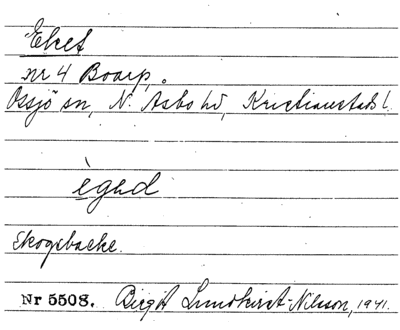 Eket
nr 4 Boarp,
Össjö sn, N. Åsbo hd, Kristianstads l.
ègəd
Skogsbacke.
Nr 5508. Birgit Lundkvist-Nilsson, 1941.